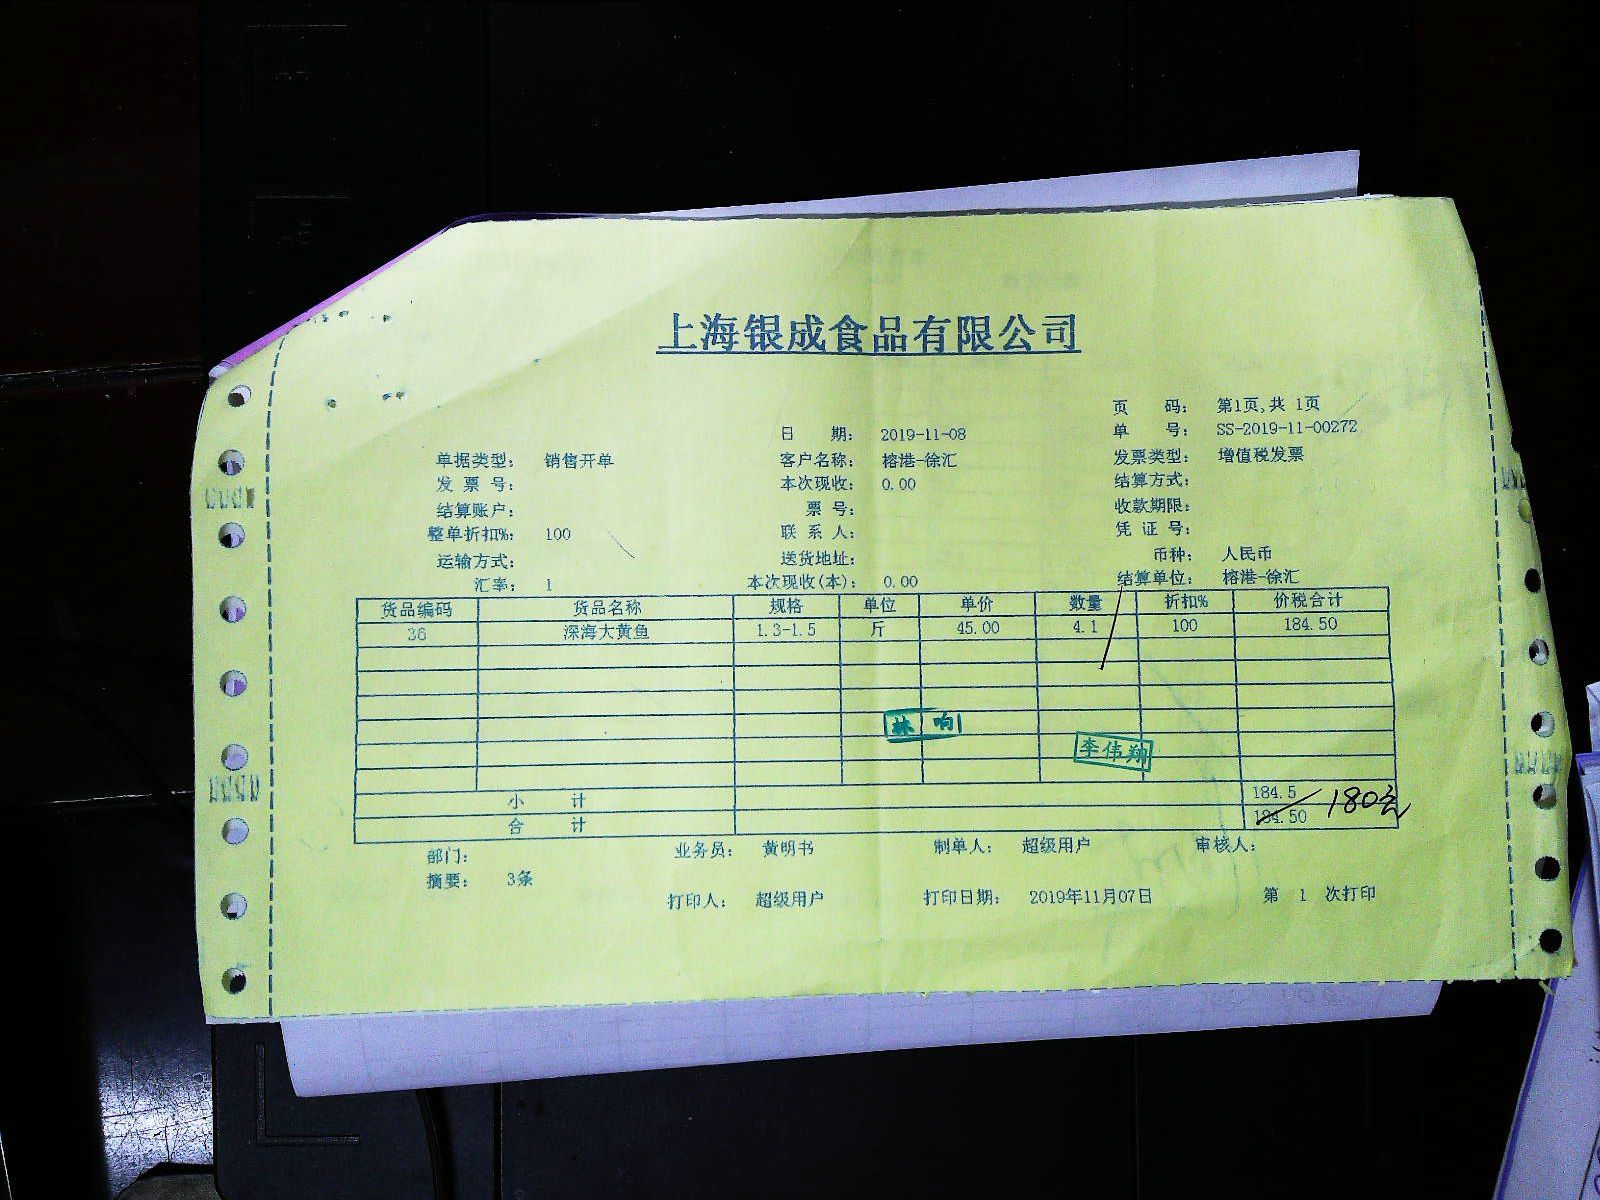 上海银成食品有限公司
页 码： 第1页,共 1页
日 期： 2019-11-08 单 号： SS-2019-11-00272
单据类型： 销售开单 客户名称： 榕港-徐汇 发票类型： 增值税发票
发 票 号： 本次现收： 0.00 结算方式：
结算账户： 票 号： 收款期限：
整单折扣%： 100 联 系 人： 凭 证 号：
运输方式： 送货地址： 币种： 人民币
汇率： 1 本次现收(本)： 0.00 结算单位： 榕港-徐汇
货品编码 货品名称 规格 单位 单价 数量 折扣% 价税合计
36 深海大黄鱼 1.3-1.5 斤 45.00 4.1 100 184.50
林 响
李伟翔
小 计 184.5
合 计 184.50 180元
部门： 业务员： 黄明书 制单人： 超级用户 审核人：
摘要： 3条
打印人： 超级用户 打印日期： 2019年11月07日 第 1 次打印